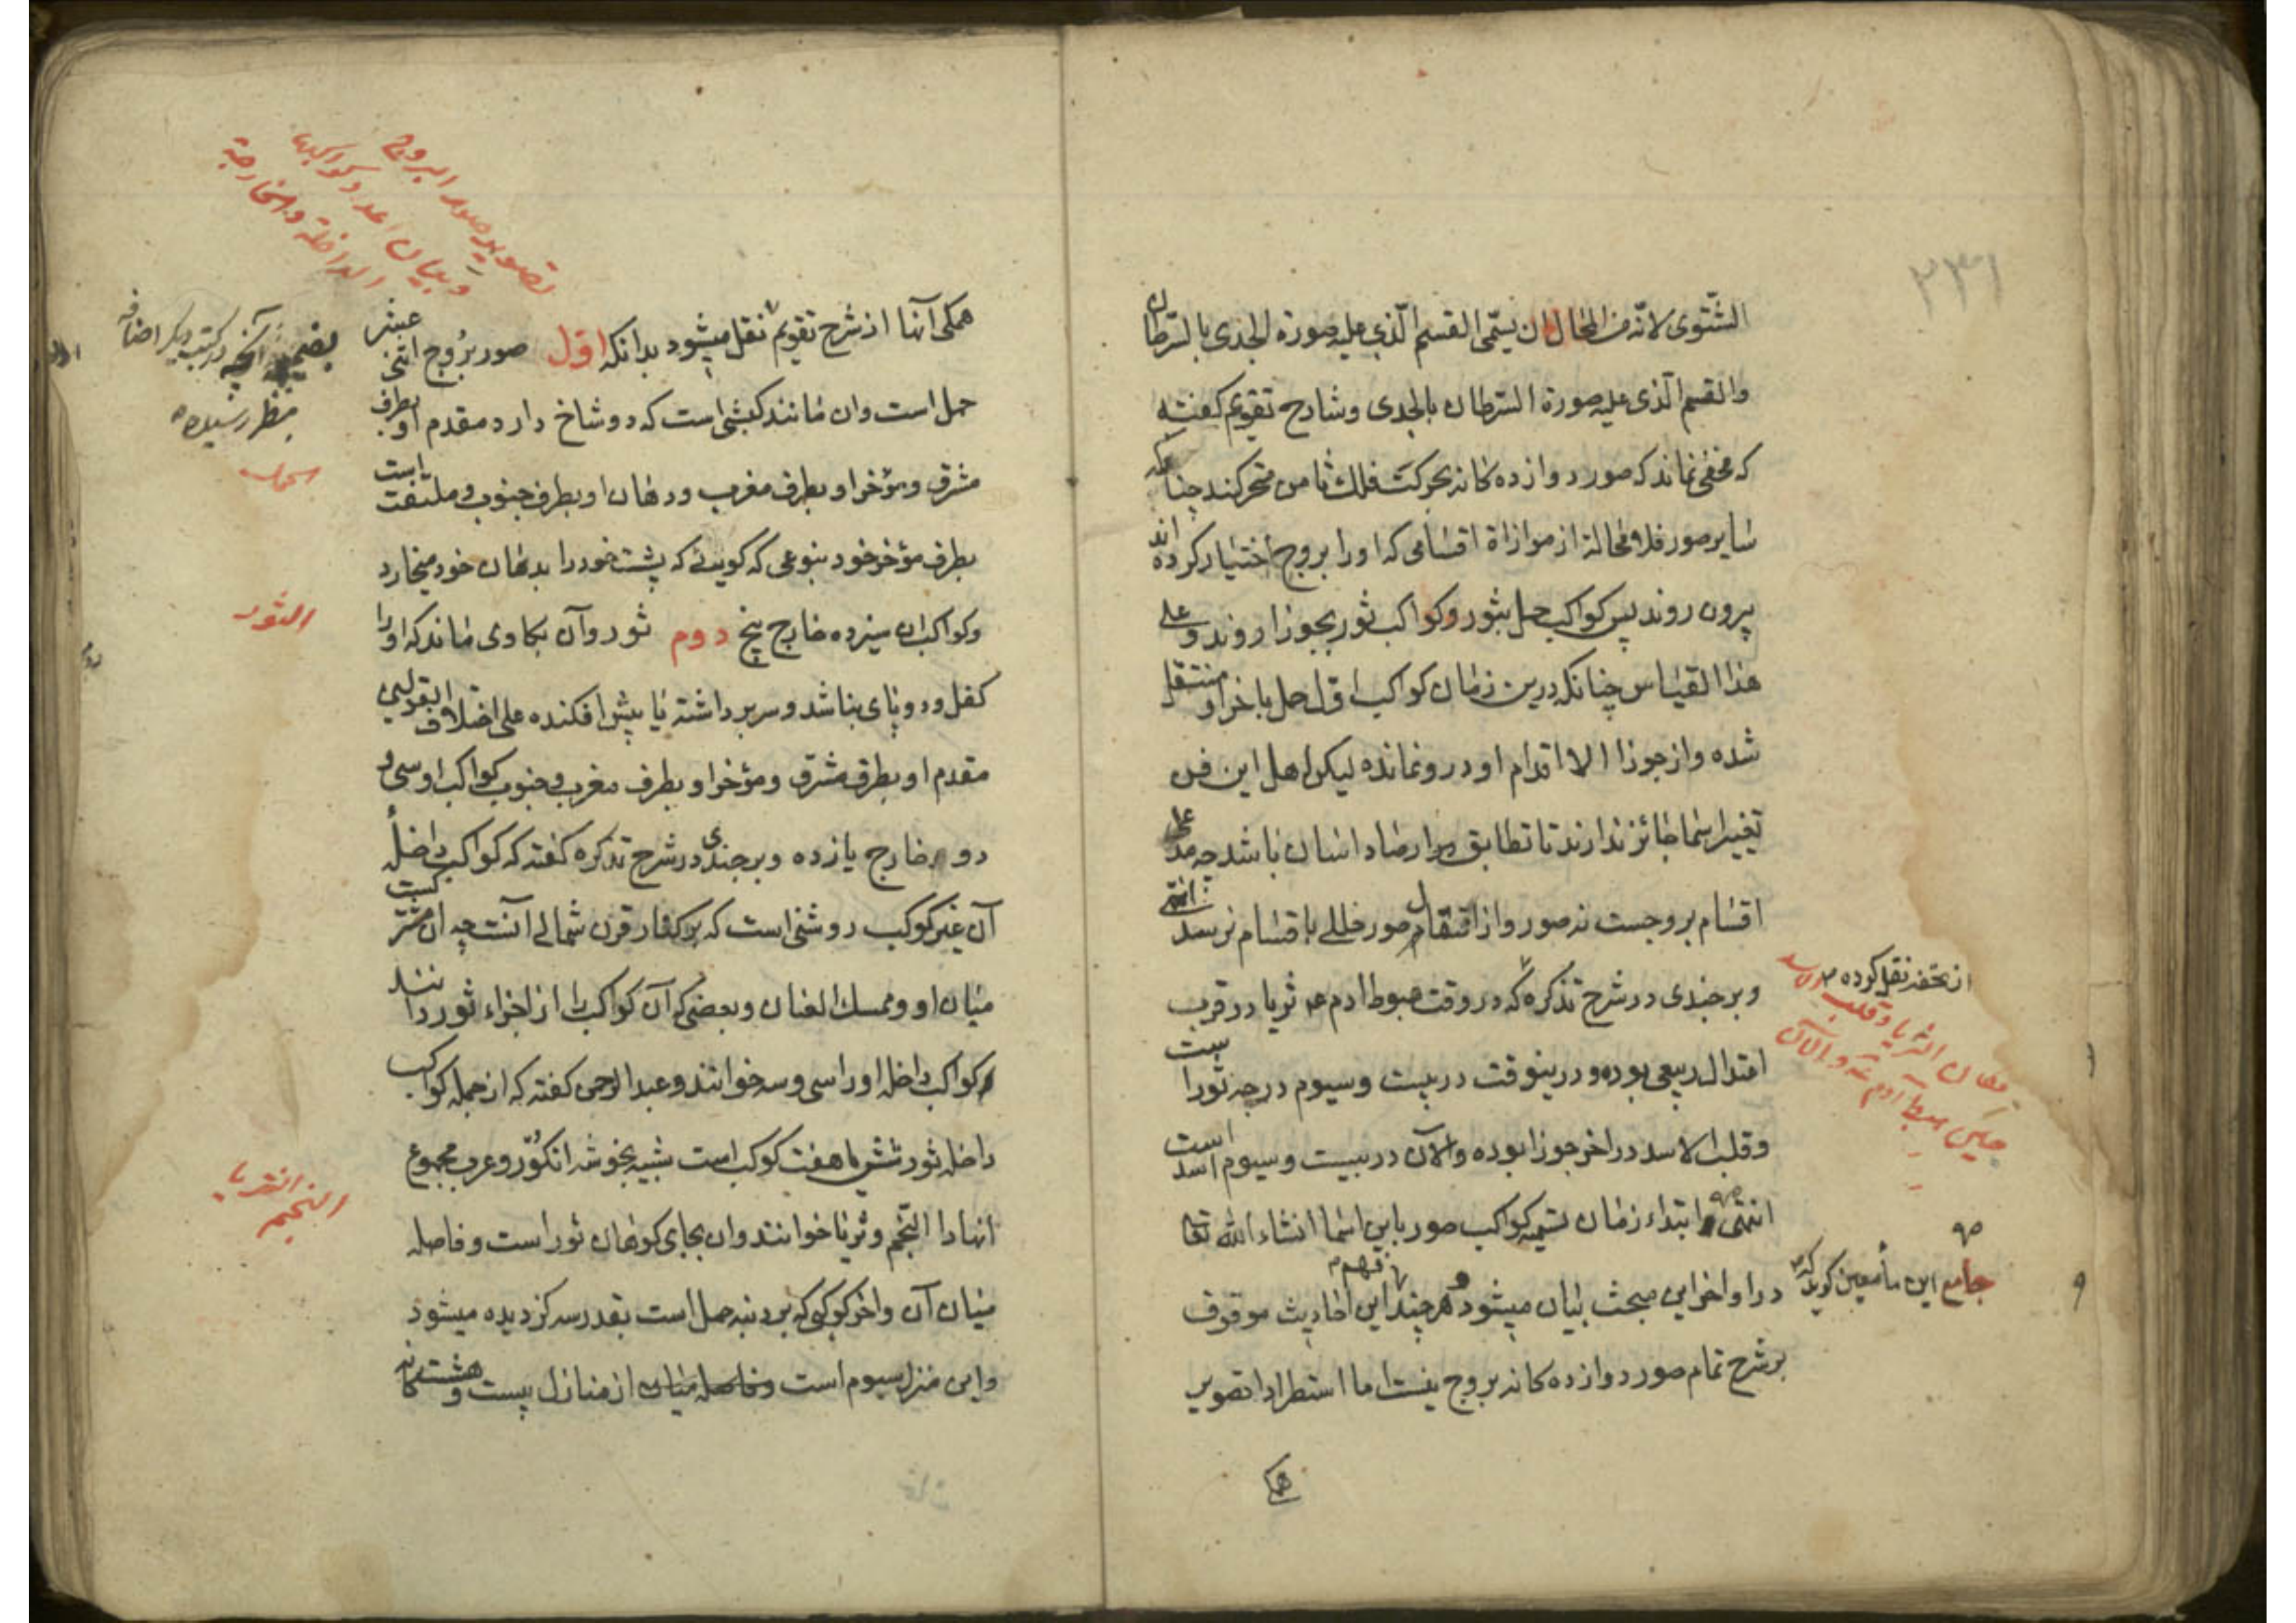 ۲۳۹
الشتوی لانّه من المحال ان یسمّی القسم الّذی علیه صورة الجدی بالسّرطان
والقسم الّذی علیه صورة السّرطان بالجدی وشارح تقویم گفته
که مخفی نماند که صور دوازده کانه بحرکت فلک ثامن متحرکند چنانکه
سایر صور فلا محالة از موازاة اقسامی که او را بروج اختیار کرده اند
بیرون روند پس کواکب حمل بثور و کواکب ثور بجوزا روند و علی
هذا القیاس چنانکه درین زمان کواکب اول حمل باخر او منتقل
شده واز جوزا الا اقدام او درو نمانده لیکن اهل این فن
تغییر اسما جائز ندارند تا تطابق ارصاد ایشان باشد چه مدعی
اقسام بروجست نه صور واز انتقال صور خللی باقسام نرسد انتهی
وبرجندی در شرح تذکره که در وقت هبوط ادم ع ثریا در قرب
اعتدال ربیعی بوده ودرینوقت در بیست وسیوم درجه ثورا ست
وقلب الاسد در اخر جوزا بوده والآن در بیست وسیوم اسد است
انتهی ابتداء زمان تسمیه کواکب صور باین اسما انشاء الله تعا
در اواخر این مبحث بیان میشود و هر چند فهم این احادیث موقوف
بر شرح تمام صور دوازده کانه بروج نیست اما استطرادا تصویر
همکی
از تحفه نقل کرده
مکان الثریا وقلب الاسد
حین هبوط آدم ع والآن
جامع این مأمعین کوید که
تصویر صور البروج
وبیان اعداد کواکبها
الداخلة والخارجة
همکی آنها از شرح تقویم نقل میشود بدانکه اول صور بروج اثنی عشر
حمل است وان مانند کبشی است که دو شاخ دارد مقدم او بطرف
مشرق ومؤخر او بطرف مغرب ودهان او بطرف جنوب وملتفت است
بطرف مؤخر خود بنوعی که کویی که پشت خود را بدهان خود میخارد
وکواکب ان سیزده خارج پنج دوم ثور وآن بکاوی ماند که او را
کفل ودو پای نباشد وسر برداشته یا پیش افکنده علی اختلاف القولین
مقدم او بطرف مشرق ومؤخر او بطرف مغرب وجنوب کواکب او سی و
دو خارج یازده وبرجندی در شرح تذکره گفته که کواکب داخلهٔ
آن غیر کوکب روشنی است که بر کنار قرن شمالی آنست چه ان مشترکست
میان او وممسک العنان وبعضی که آن کواکب را از اجزاء ثور دانند
کواکب داخله او را سی وسه خوانند وعبد الرحمن گفته که از جمله کواکب
داخله ثور شش یا هفت کوکب است شبیه بخوشه انکور وعرب مجموع
انها را النّجم وثریا خوانند وان بجای کوهان ثور است وفاصله
میان آن واخر کوکبی که بر دنبه حمل است بقدر سه کز دیده میشود
واین منزل سیوم است وفاصله میان از منازل بیست وهشت کانه
بضمیمه آنچه در کتب دیکر اضافه
بنظر رسیده
الحمل
الثور
النجم الثریا